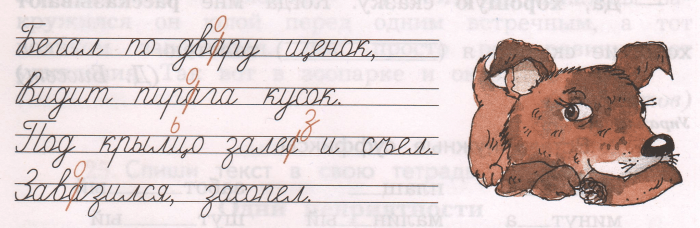 о
Бегал по двару щенок,
о
Видит пирага кусок.
ь з
Под крылцо залес и съел.
о
Завазился, засопел.